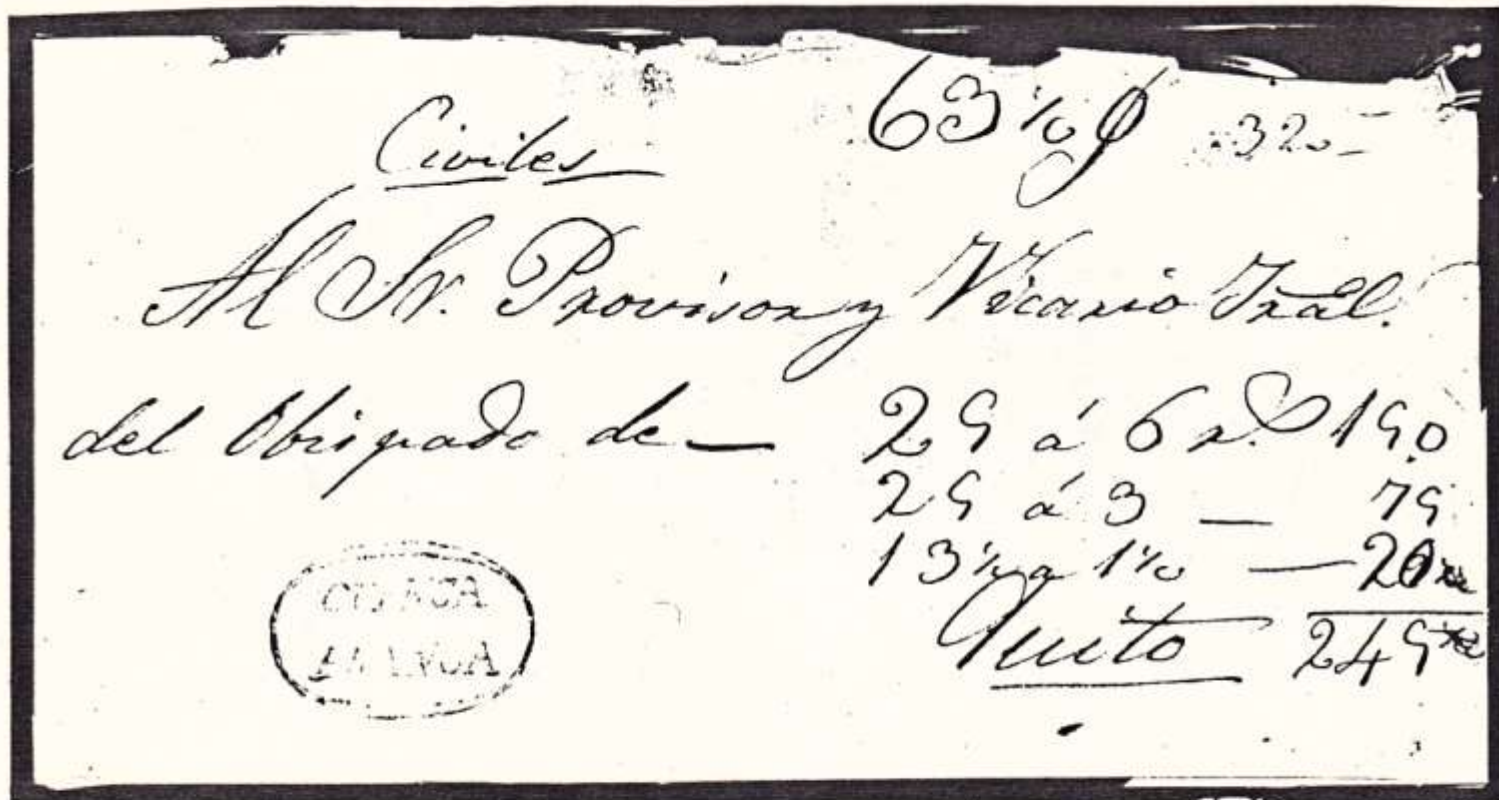 Civiles 63 ½ 320-
Al Sr. Provisor y Vicario Gral.
del Obispado de — 25 á 6 rs 150
25 á 3 — 75
13 ½ a 1 ½ — 20
Quito 245
CUENCA
FRANCA